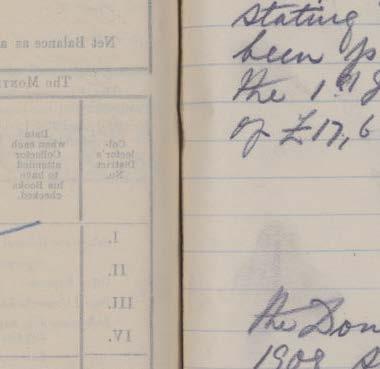 Net Balance as a
The MONT
Col-
lector's
District
No.
Date
when each
Collector
attended
to have
his Books
checked.
I.
II.
III.
IV.
stating
been p
the 1st J
of £17,6
the Don
1909 s